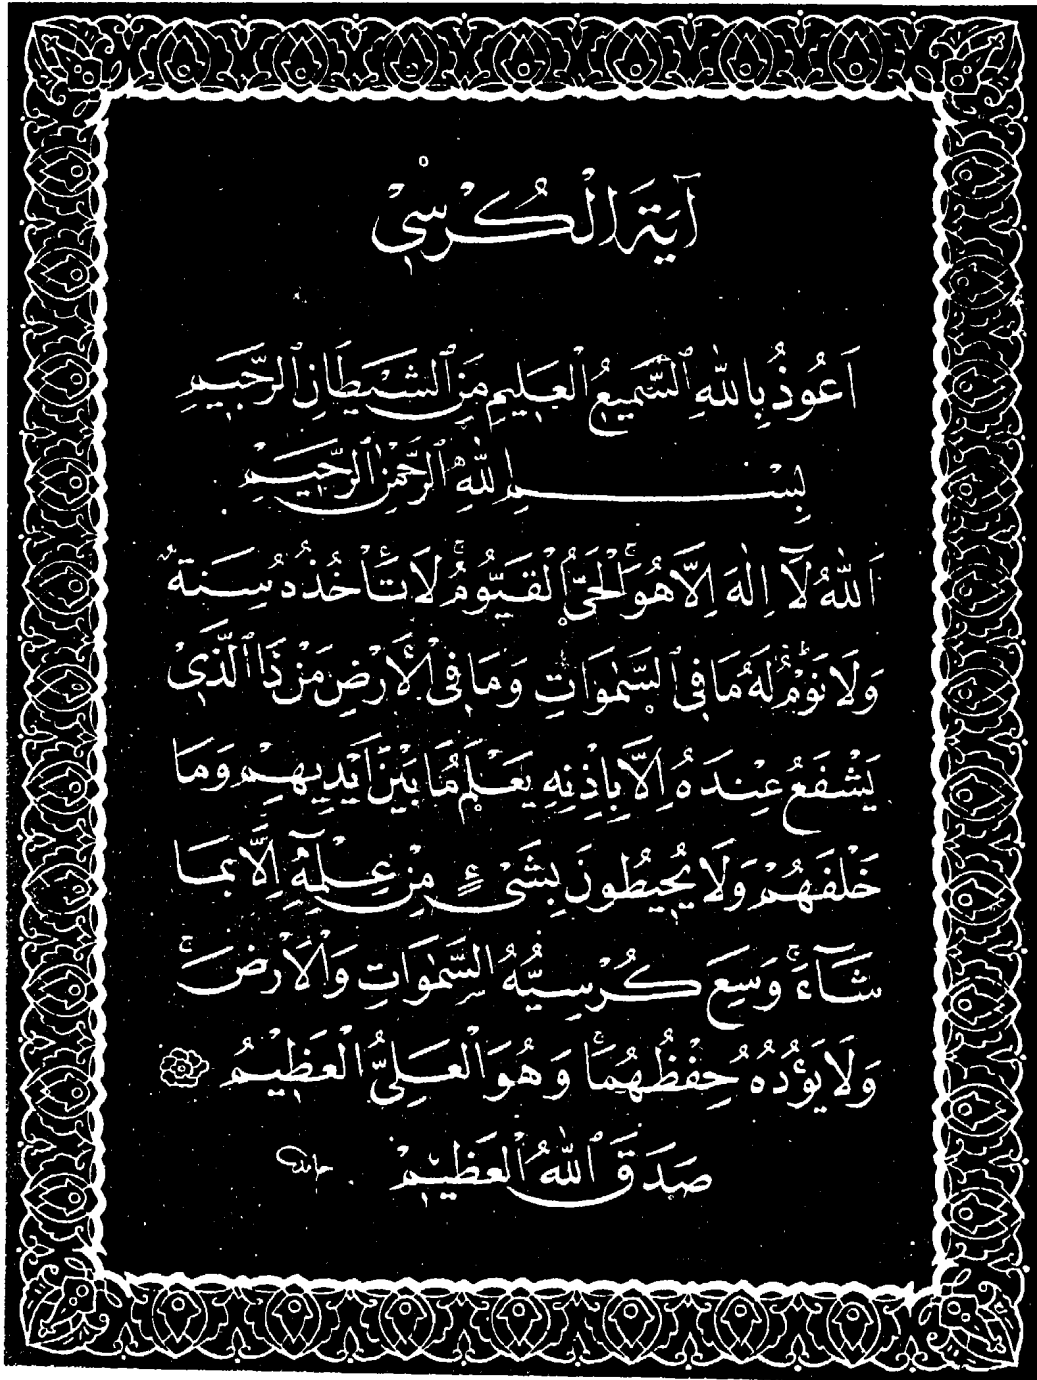 آيَةَ الْكُرْسِىْ
اَعُوذُ بِاللّٰهِ السَّمِيعِ الْعَلِيمِ مِنَ الشَّيْطَانِ الرَّجِيمِ
بِسْمِ اللّٰهِ الرَّحْمٰنِ الرَّحِيمِ
اَللّٰهُ لَآ اِلٰهَ اِلَّا هُوَ الْحَىُّ الْقَيُّومُ لَا تَأْخُذُهُ سِنَةٌ
وَلَا نَوْمٌ لَهُ مَا فِى السَّمٰوَاتِ وَمَا فِى الْاَرْضِ مَنْ ذَا الَّذِى
يَشْفَعُ عِنْدَهُ اِلَّا بِاِذْنِهِ يَعْلَمُ مَا بَيْنَ اَيْدِيهِمْ وَمَا
خَلْفَهُمْ وَلَا يُحِيطُونَ بِشَىْءٍ مِنْ عِلْمِهِ اِلَّا بِمَا
شَآءَ وَسِعَ كُرْسِيُّهُ السَّمٰوَاتِ وَالْاَرْضَ
وَلَا يَؤُدُهُ حِفْظُهُمَا وَهُوَ الْعَلِىُّ الْعَظِيمُ
صَدَقَ اللّٰهُ الْعَظِيمْ